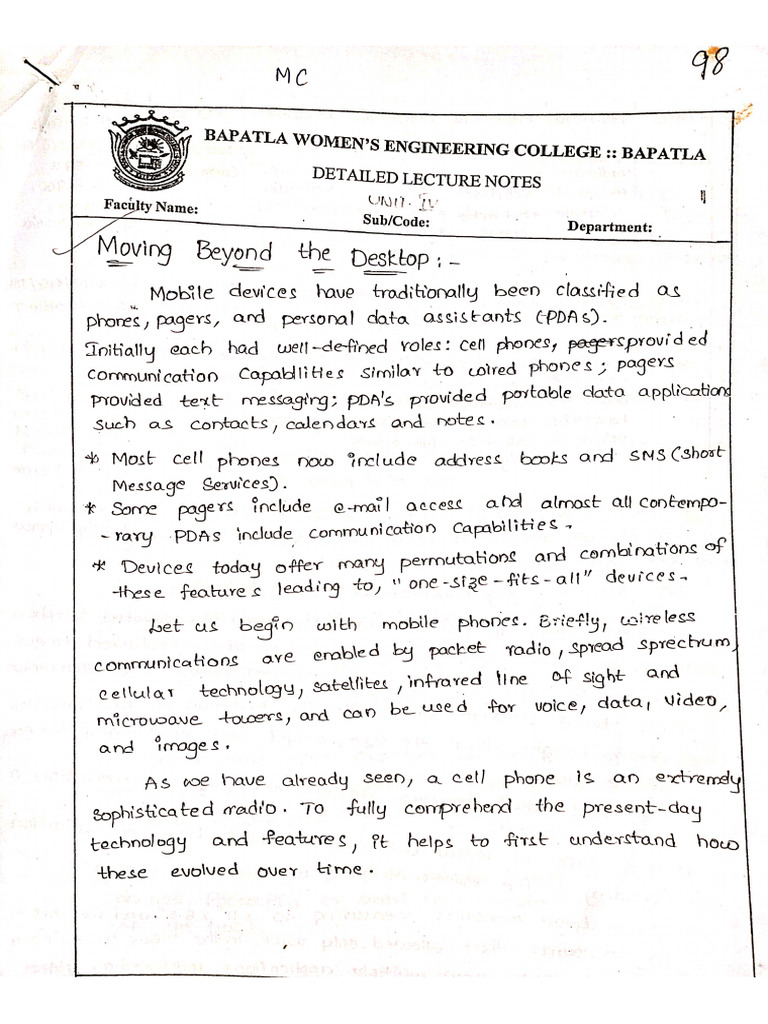 MC
98
BAPATLA WOMEN'S ENGINEERING COLLEGE :: BAPATLA
DETAILED LECTURE NOTES
UNIT-IV
Faculty Name:
Sub/Code:
Department:
Moving Beyond the Desktop:-
Mobile devices have traditionally been classified as
phones, pagers, and personal data assistants (PDAs).
Initially each had well-defined roles: cell phones, pagers provided
communication capabilities similar to wired phones; pagers
provided text messaging; PDA's provided portable data application
such as contacts, calendars and notes.
* Most cell phones now include address books and SMS (Short
Message Services).
* Some pagers include e-mail access and almost all contempo-
-rary PDAs include communication capabilities.
* Devices today offer many permutations and combinations of
these features leading to, "one-size-fits-all" devices.
Let us begin with mobile phones. Briefly, wireless
communications are enabled by packet radio, spread sprectrum,
cellular technology, satellites, infrared line of sight and
microwave towers, and can be used for voice, data, video,
and images.
As we have already seen, a cell phone is an extremely
sophisticated radio. To fully comprehend the present-day
technology and features, it helps to first understand how
these evolved over time.